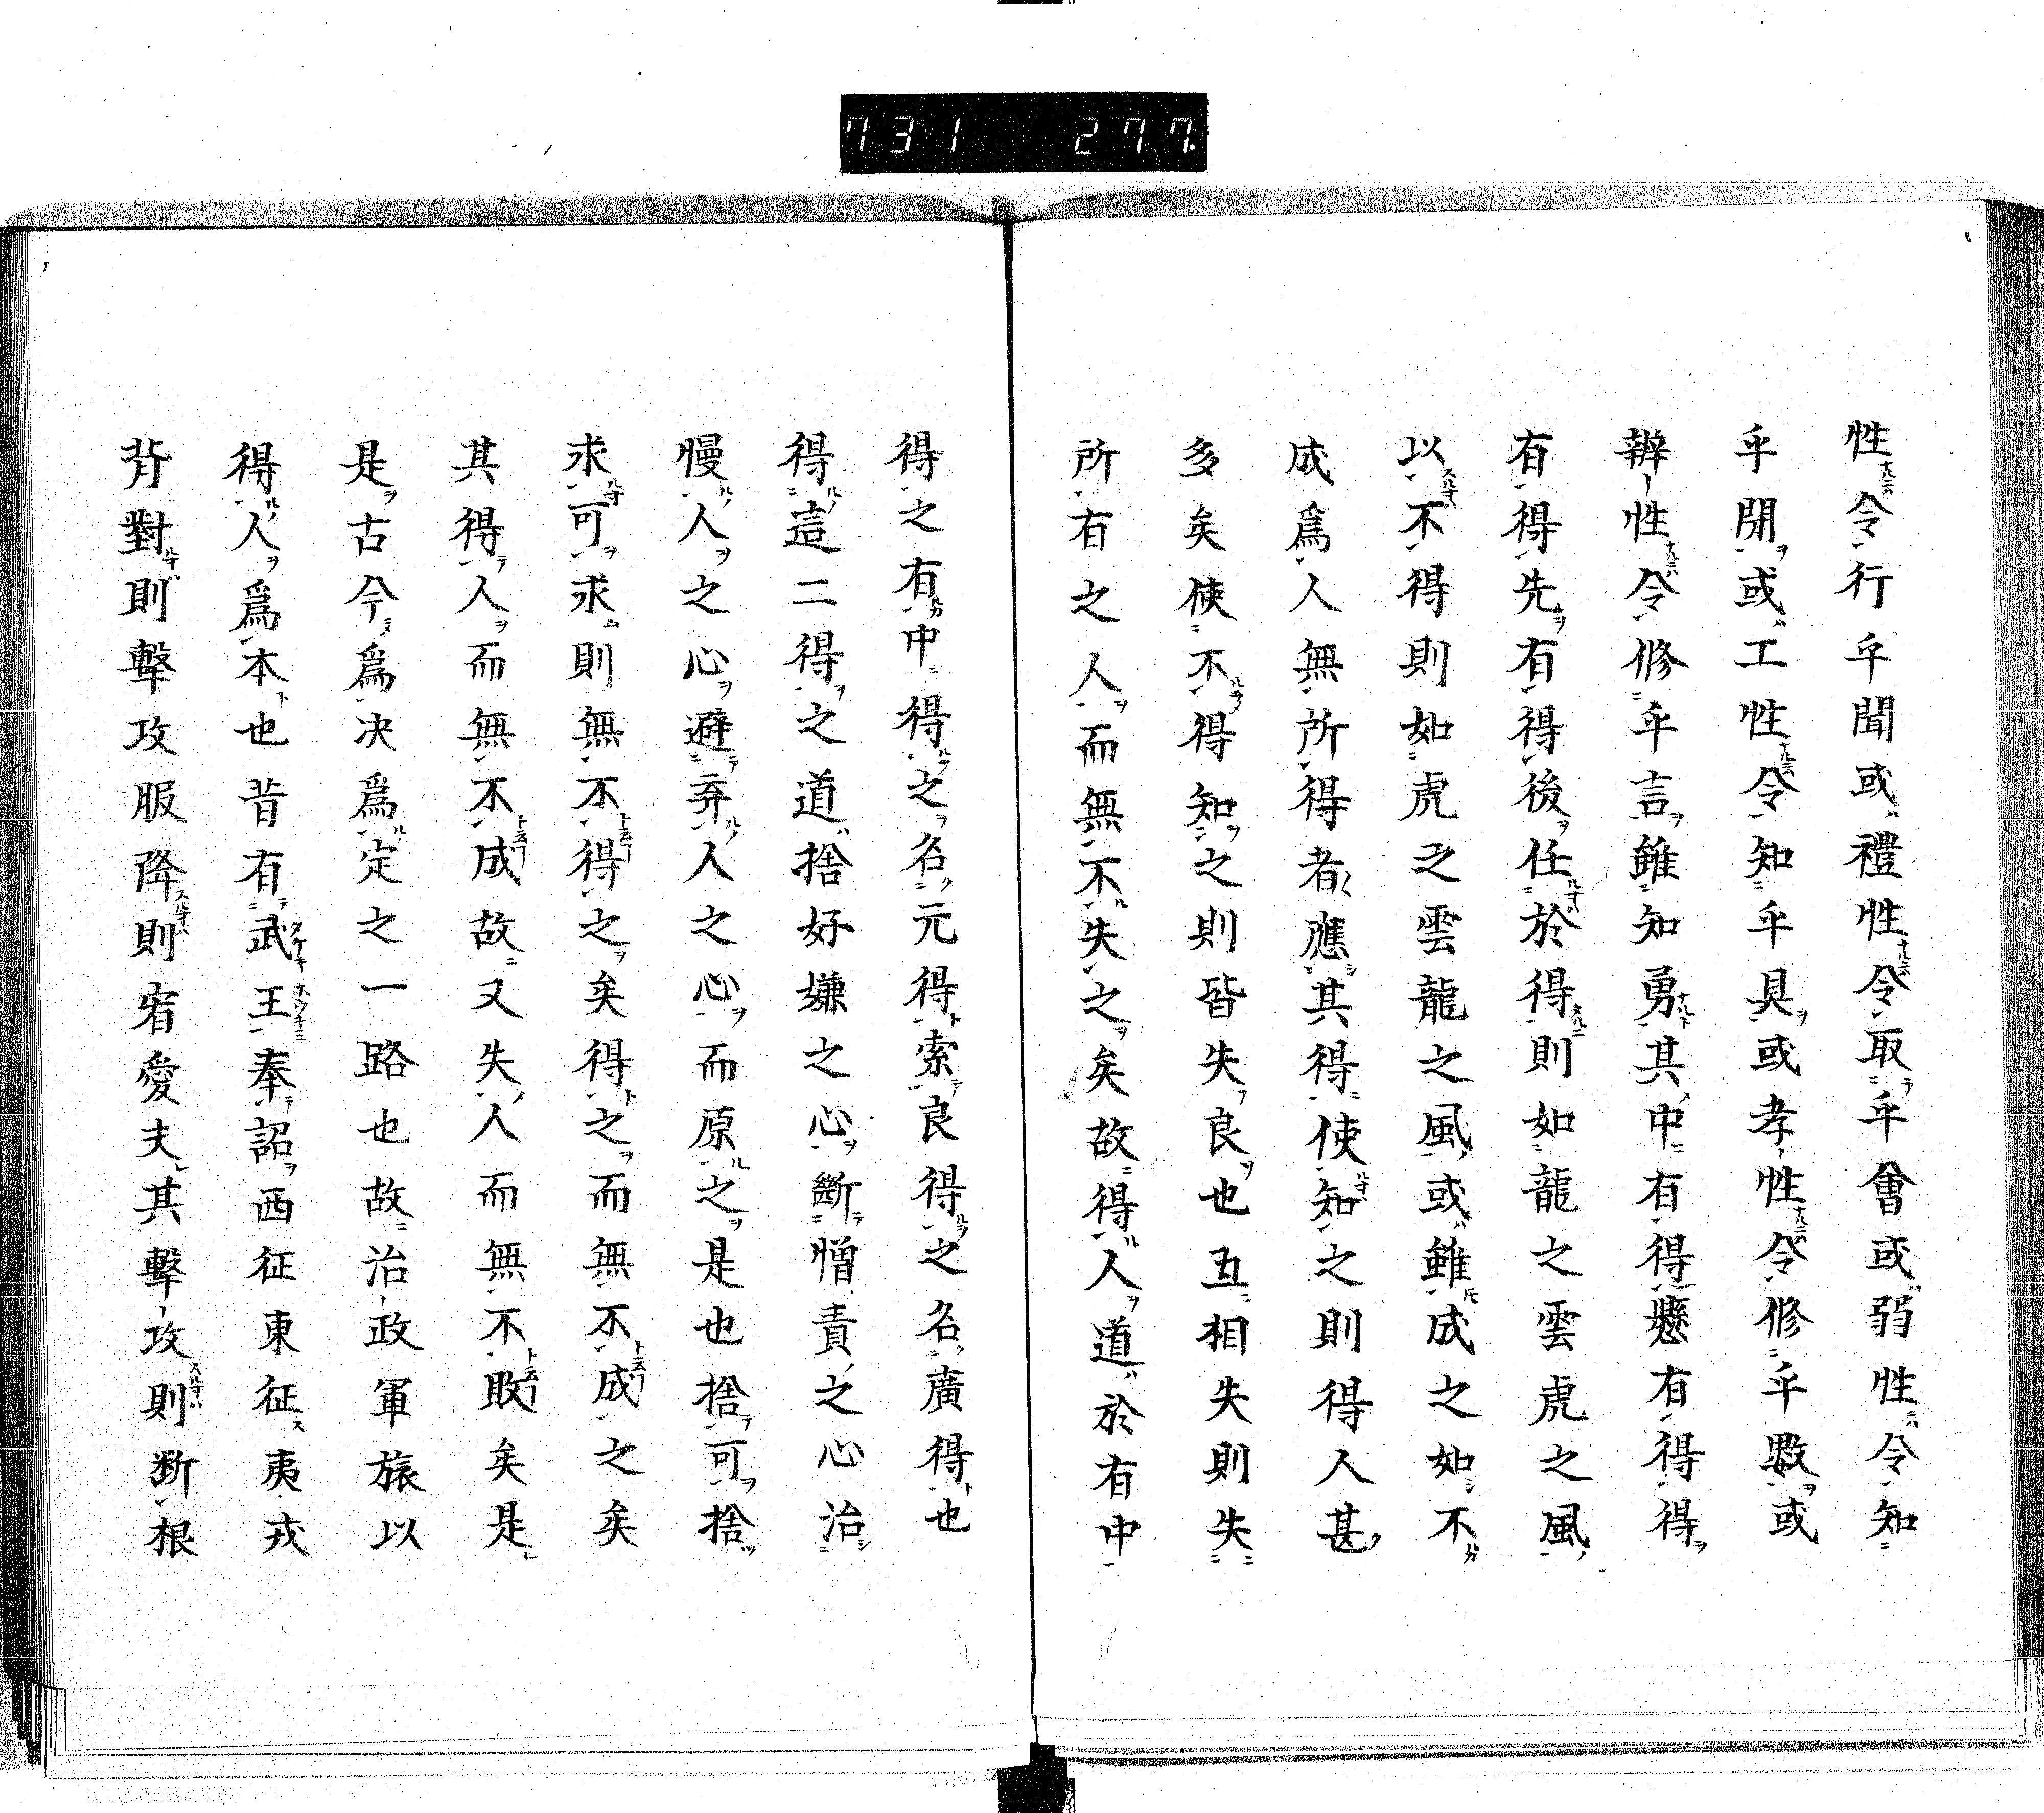 731 277.
性令行乎聞或禮性令取乎會或弱性令知
乎閒或工性令知乎具或孝性令修乎數或
辨性令修乎言雖知勇其中有得懸有得得
有得先有得後任於得則如龍之雲虎之風
以不得則如虎之雲龍之風或雖成之如不
成爲人無所得者應其得使知之則得人甚
多矣使不得知之則皆失良也互相失則失
所有之人而無不失之矣故得人道於有中
得之有中得之名元得索良得之名廣得也
得這二得之道捨好嫌之心斷憎責之心治
慢人之心避弃人之心而原之是也捨可捨
求可求則無不得之矣得之而無不成之矣
其得人而無不成故又失人而無不敗矣是
是古今爲决爲定之一路也故治政軍旅以
得人爲本也昔有武王奉詔西征東征夷戎
背對則擊攻服降則宥愛夫其擊攻則断根